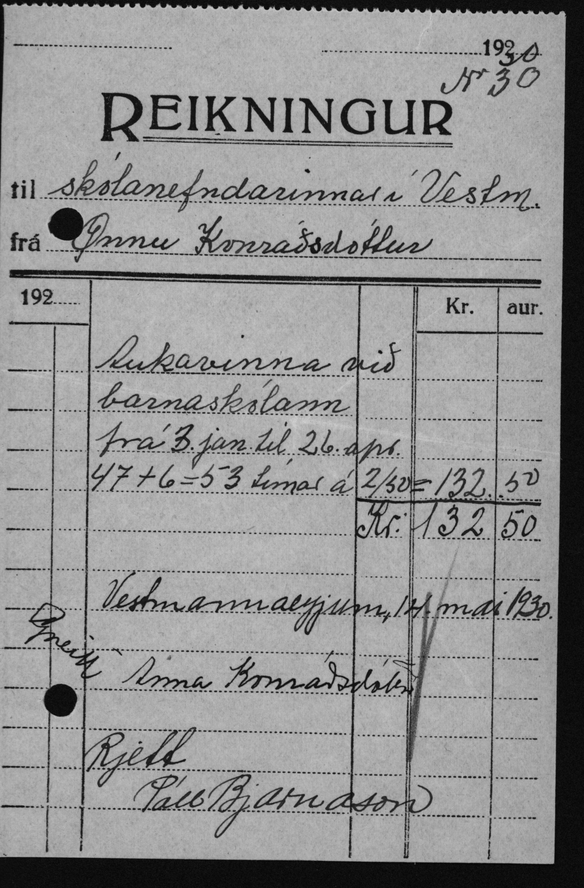 1930
Nr 30
REIKNINGUR
til skólanefndarinnar í Vestm.
frá Önnu Konráðsdóttur
192
Kr. aur.
Aukavinna við
barnaskólann
frá 3. jan til 26. apr.
47+6=53 tímar á 2/50 = 132. 50
Kr. 132 50
Vestmannaeyjum, 14. maí 1930.
Greitt
Anna Konráðsdóttir
Rjett
Páll Bjarnason